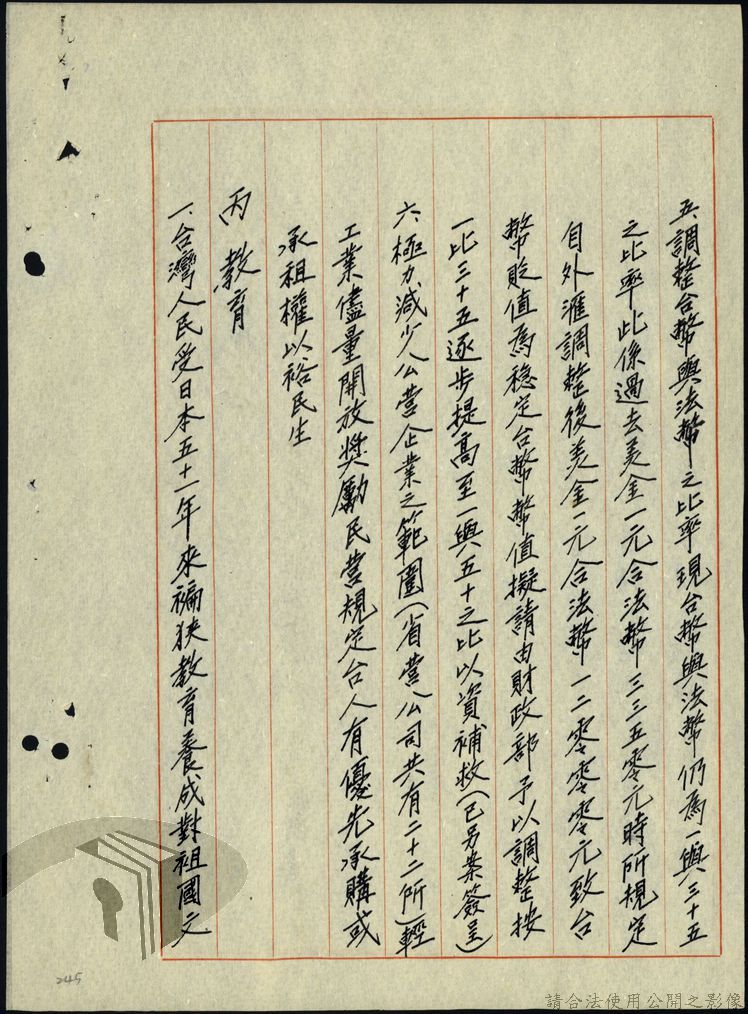 五、調整台幣與法幣之比率現台幣與法幣仍為一與三十五
之比率此係過去美金一元合法幣三三五零元時所規定
自外滙調整後美金一元合法幣一二零零零元致台
幣貶值為穩定台幣幣值擬請由財政部予以調整按
一比三十五逐步提高至一與五十之比以資補救(已另案簽呈)
六、極力減少公營企業之範圍(省營公司共有二十二所)輕
工業儘量開放獎勵民營規定台人有優先承購或
承租權以裕民生
丙 教育
一、台灣人民受日本五十一年來褊狹教育養成對祖國文
245
請合法使用公開之影像